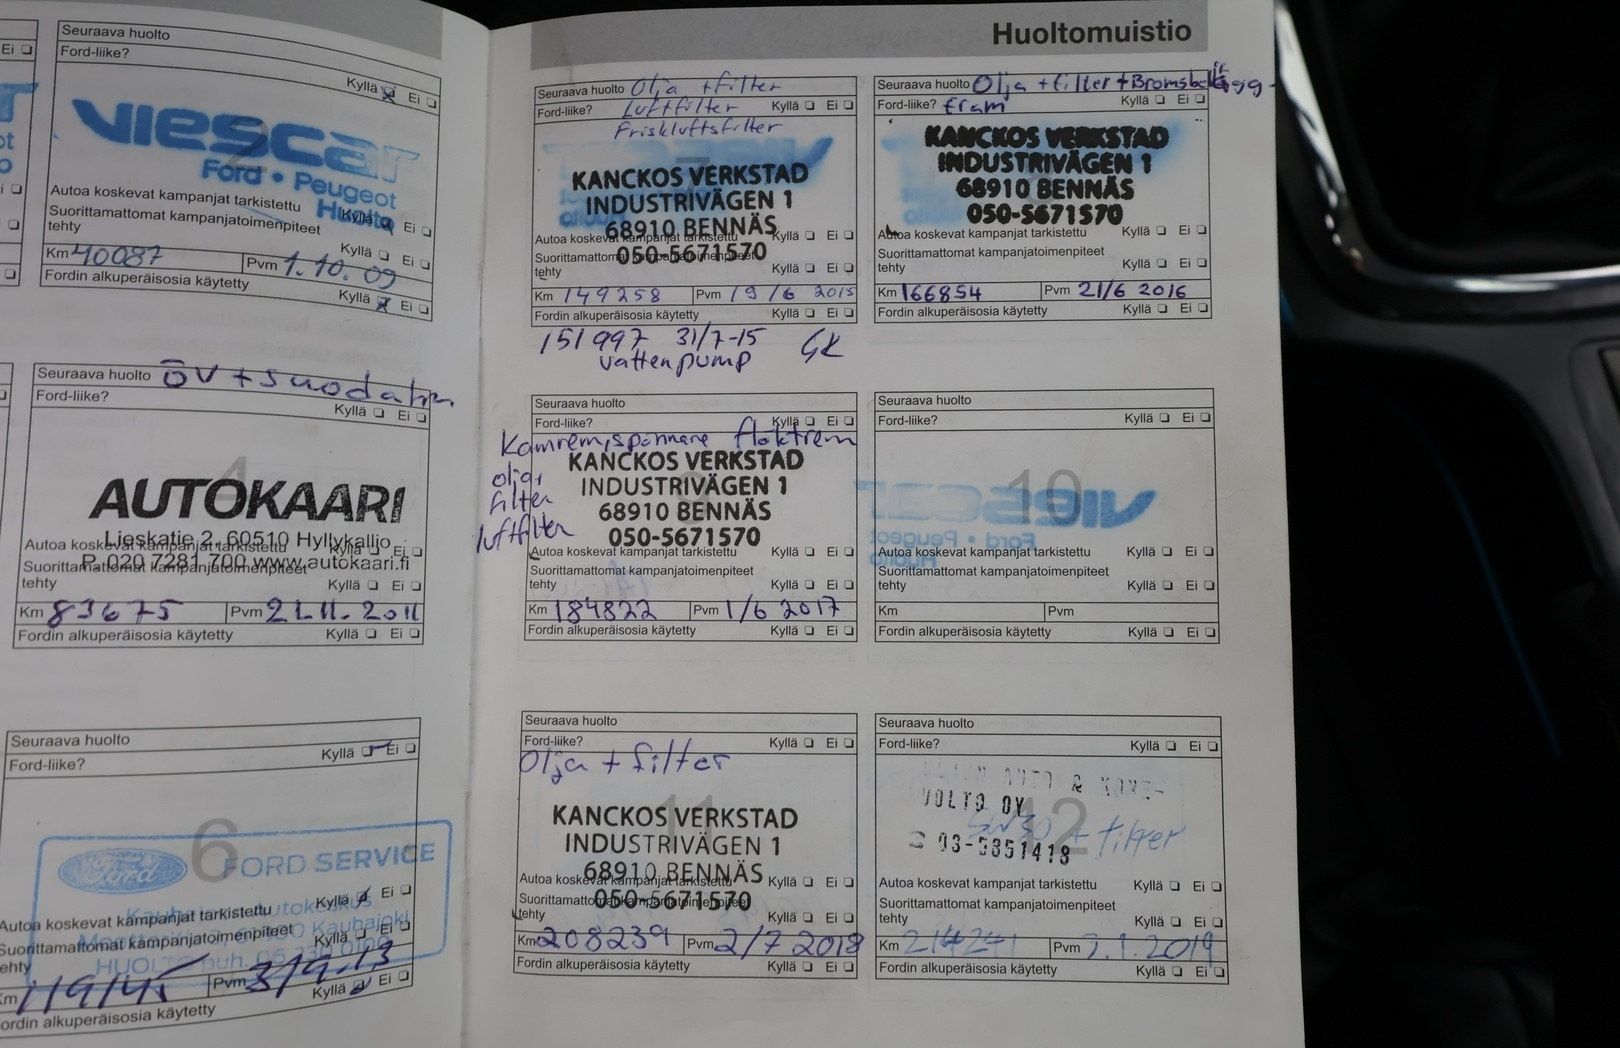 Ei
Seuraava huolto
Ford-liike?
Kyllä Ei
viescar
Ford • Peugeot
Huolto
Autoa koskevat kampanjat tarkistettu
Kyllä Ei
Suorittamattomat kampanjatoimenpiteet
tehty
Kyllä Ei
Km 40087 Pvm 1.10.09
Fordin alkuperäisosia käytetty
Kyllä Ei
Seuraava huolto ÖV + suodatin
Ford-liike?
Kyllä Ei
4
AUTOKAARI
Lieskatie 2, 60510 Hyllykallio
Autoa koskevat kampanjat tarkistettu Kyllä Ei
P. 020 7281 700 www.autokaari.fi
Suorittamattomat kampanjatoimenpiteet
tehty Kyllä Ei
Km 83675 Pvm 21.11.2011
Fordin alkuperäisosia käytetty Kyllä Ei
Seuraava huolto
Ford-liike?
Kyllä Ei
6
Ford FORD SERVICE
Autoa koskevat kampanjat tarkistettu Kyllä Ei
Suorittamattomat kampanjatoimenpiteet
ehty Kyllä Ei
HUOLTO puh.
Km 119145 Pvm 3/9-13
Fordin alkuperäisosia käytetty Kyllä Ei
Huoltomuistio
Seuraava huolto Olja + filter
Ford-liike? Luftfilter Kyllä Ei
Friskluftsfilter
KANCKOS VERKSTAD
INDUSTRIVÄGEN 1
68910 BENNÄS
Autoa koskevat kampanjat tarkistettu Kyllä Ei
050-5671570
Suorittamattomat kampanjatoimenpiteet
tehty Kyllä Ei
Km 149258 Pvm 19/6 2015
Fordin alkuperäisosia käytetty Kyllä Ei
151997 31/7-15 GK
vattenpump
Seuraava huolto Olja + filter + Bromsbelägg
Ford-liike? fram Kyllä Ei
KANCKOS VERKSTAD
INDUSTRIVÄGEN 1
68910 BENNÄS
050-5671570
Autoa koskevat kampanjat tarkistettu Kyllä Ei
Suorittamattomat kampanjatoimenpiteet
tehty Kyllä Ei
Km 166854 Pvm 21/6 2016
Fordin alkuperäisosia käytetty Kyllä Ei
Seuraava huolto
Ford-liike? Kyllä Ei
Kamrem, spännare fläktrem
olja,
filter
luftfilter
KANCKOS VERKSTAD
INDUSTRIVÄGEN 1
68910 BENNÄS
050-5671570
Autoa koskevat kampanjat tarkistettu Kyllä Ei
Suorittamattomat kampanjatoimenpiteet
tehty Kyllä Ei
Km 184822 Pvm 1/6 2017
Fordin alkuperäisosia käytetty Kyllä Ei
Seuraava huolto
Ford-liike? Kyllä Ei
10
Autoa koskevat kampanjat tarkistettu Kyllä Ei
Suorittamattomat kampanjatoimenpiteet
tehty Kyllä Ei
Km Pvm
Fordin alkuperäisosia käytetty Kyllä Ei
Seuraava huolto
Ford-liike? Kyllä Ei
Olja + filter
11
KANCKOS VERKSTAD
INDUSTRIVÄGEN 1
68910 BENNÄS
Autoa koskevat kampanjat tarkistettu Kyllä Ei
050-5671570
Suorittamattomat kampanjatoimenpiteet
tehty Kyllä Ei
Km 208239 Pvm 2/7 2018
Fordin alkuperäisosia käytetty Kyllä Ei
Seuraava huolto
Ford-liike? Kyllä Ei
12
5W30 + filtter
03-5851418
Autoa koskevat kampanjat tarkistettu Kyllä Ei
Suorittamattomat kampanjatoimenpiteet
tehty Kyllä Ei
Km Pvm
Fordin alkuperäisosia käytetty Kyllä Ei